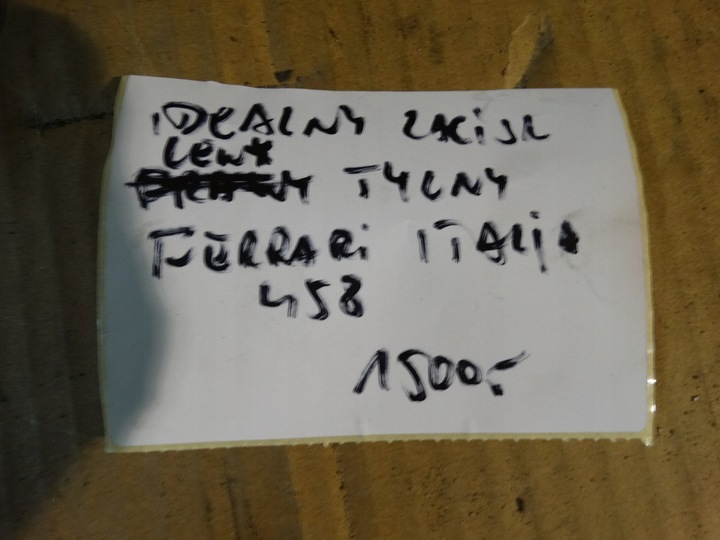 IDEALNY ZACISK
LEWY
TYLNY
FERRARI ITALIA
458
1500,-